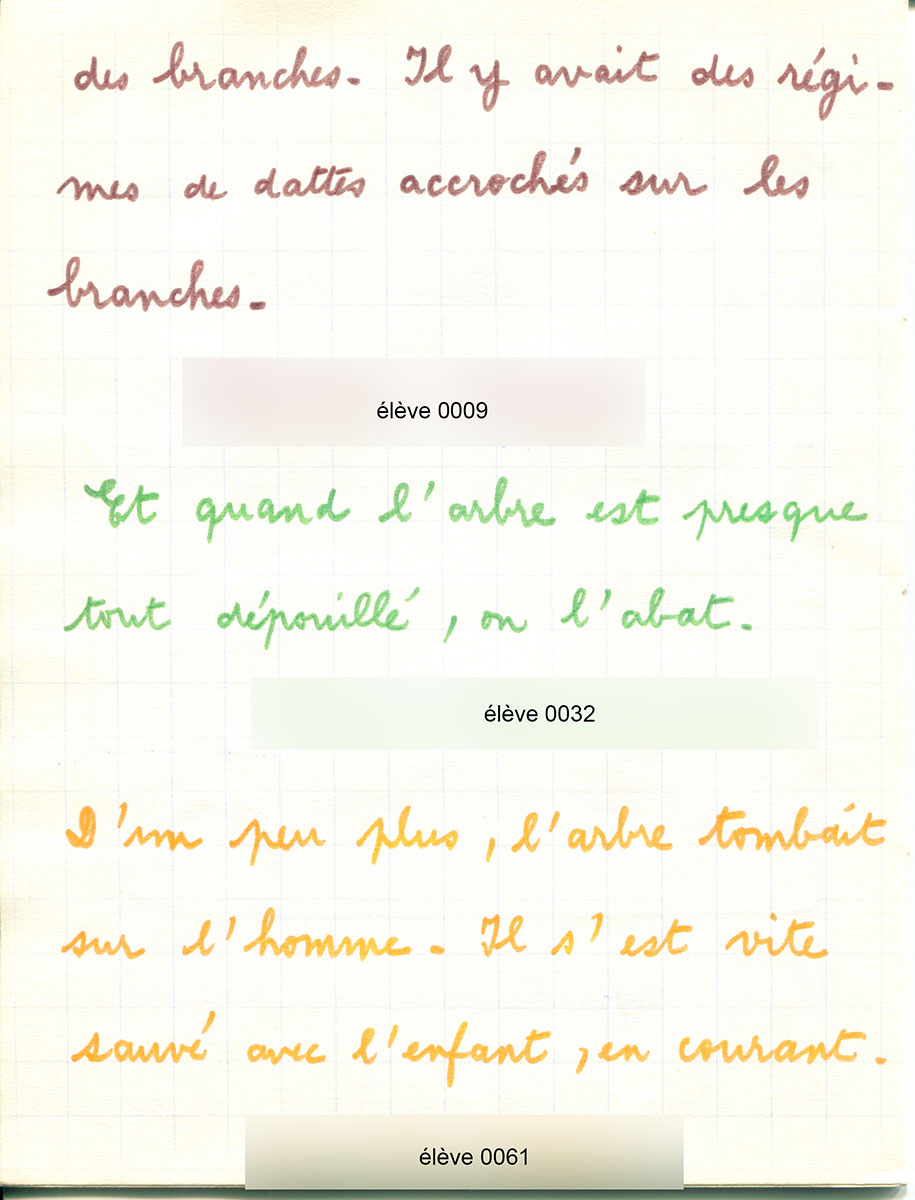 des branches. Il y avait des régi-
mes de dattes accrochés sur les
branches.
élève 0009
Et quand l'arbre est presque
tout dépouillé, on l'abat.
élève 0032
D'un peu plus, l'arbre tombait
sur l'homme. Il s'est vite
sauvé avec l'enfant, en courant.
élève 0061